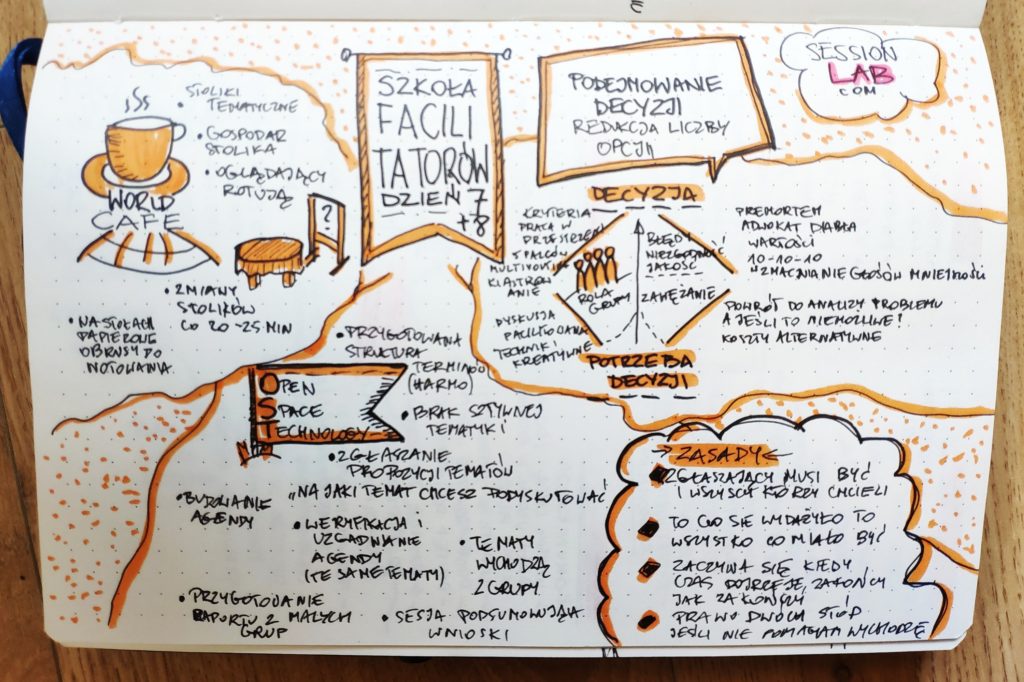 SZKOŁA
FACILI
TATORÓW
DZIEŃ 7
+8
SESSION
LAB
COM
WORLD
CAFE
• STOLIKI
TEMATYCZNE
• GOSPODARZ
STOLIKA
• OGLĄDAJĄCY
ROTUJĄ
?
• ZMIANY
STOLIKÓW
CO 20-25 MIN
• NA STOŁACH
PAPIEROWE
OBRUSY DO
NOTOWANIA
PODEJMOWANIE
DECYZJI
REDAKCJA LICZBY
OPCJI
DECYZJA
KRYTERIA
PRACA W
PRZESTRZENI
5 PALCÓW
MULTIVOTING
KLASTROW
ANIE
DYSKUSJA
FACILITOWANA
TECHNIKI
KREATYWNE
ROLA
GRUPY
BŁĘDY
NIEZGODNOŚĆ
JAKOŚĆ
ZAWĘŻANIE
POTRZEBA
DECYZJI
PREMORTEM
ADWOKAT DIABŁA
WARTOŚCI
10-10-10
WZMACNIANIE GŁOSÓW MNIEJSZOŚCI
POWRÓT DO ANALIZY PROBLEMU
A JEŚLI TO NIEMOŻLIWE?
KOSZTY ALTERNATYWNE
OPEN
SPACE
TECHNOLOGY
• PRZYGOTOWANA
STRUKTURA
TERMINÓW
(HARMO)
• BRAK SZTYWNEJ
TEMATYKI
• ZGŁASZANIE
PROPOZYCJI TEMATÓW
„NA JAKI TEMAT CHCESZ PODYSKUTOWAĆ
• BUDOWANIE
AGENDY
• WERYFIKACJA I
UZGADNIANIE
AGENDY
(TE SAME TEMATY)
• TEMATY
WYCHODZĄ
Z GRUPY
• PRZYGOTOWANIE
RAPORTU Z MAŁYCH
GRUP
• SESJA PODSUMOWUJĄCA
WNIOSKI
→ ZASADY ←
ZGŁASZAJĄCY MUSI BYĆ
I WSZYSCY KTÓRZY CHCIELI
TO CO SIĘ WYDAŻYŁO TO
WSZYSTKO CO MIAŁO BYĆ
ZACZYNA SIĘ KIEDY
CZAS DOJRZEJE, ZAKOŃCZY
JAK ZAKOŃCZY!
PRAWO DWÓCH STÓP
JEŚLI NIE POMAGAM WYCHODZĘ